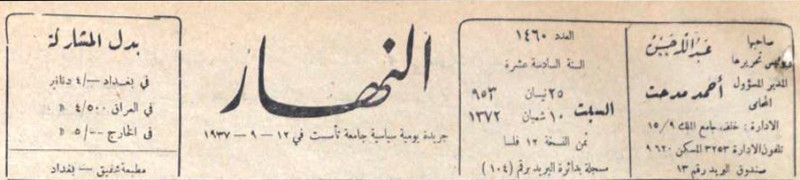 صاحبها
ورئيس تحريرها
عبدالله حسن
المدير المسؤول
المحامي
أحمد مدحت
الادارة : خلف جامع الملك ١٥/٩
تلفون الادارة ٣٢٥٣ المسكن ٩٦٢٠
صندوق البريد رقم ١٣
العدد ١٤٦٠
السنة السادسة عشرة
السبت
٢٥ نيسان ٩٥٣
١٠ شعبان ١٣٧٢
ثمن النسخة ١٢ فلسا
مسجلة بدائرة البريد برقم (١٠٤)
النهار
جريدة يومية سياسية جامعة تأسست في ١٢ – ٩ – ١٩٣٧
بدل المشاركة
في بغداد ٤/– دنانير
في العراق ٤/٥٠٠ »
في الخارج ٥/– »
مطبعة شفيق – بغداد